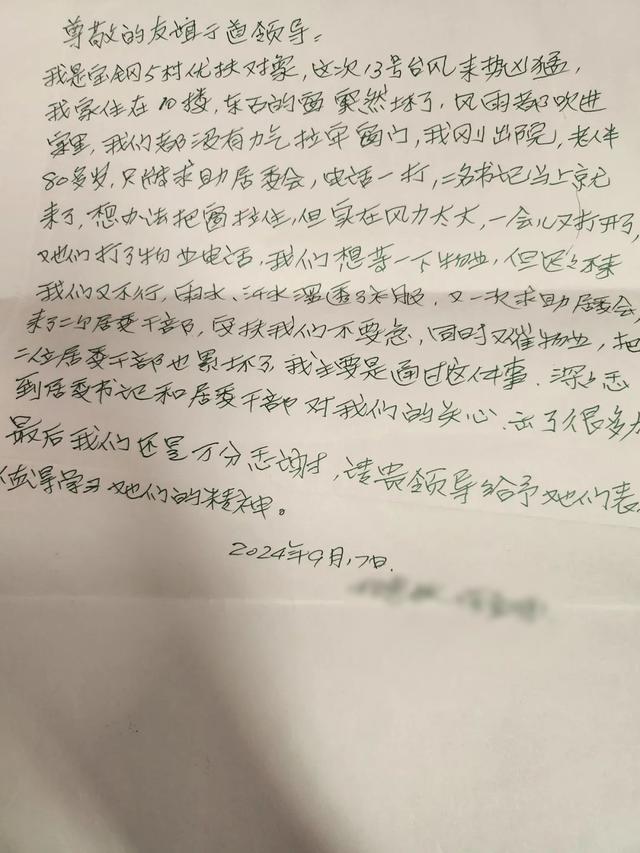 尊敬的友谊干道领导:
我是宝钢5村优扶对象,这次13号台风来势凶猛,
我家住在10楼,东石的窗突然坏了,风雨都吹进
家里,我们都没有力气拉牢窗门,我刚出院,老伴
80多岁,只能求助居委会,电话一打,二名书记马上就
来了,想办法把窗拉住,但实在风力太大,一会儿又打开了,
她们打了物业电话,我们想等一下物业,但迟迟不来
我们又不行,雨水、汗水湿透了衣服,又一次求助居委会,
来了二个居委干部,安抚我们不要急,同时又催物业,把
二位居委干部也累坏了,我主要是通过这件事.深深感
到居委书记和居委干部对我们的关心.出了很多力
最后我们还是万分感谢,请贵领导给予她们表
值得学习她们的精神。
2024年9月17日.